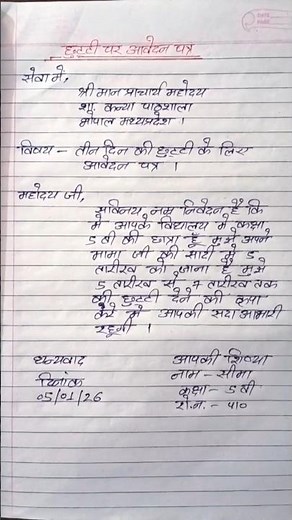 छुट्टी पर आवेदन पत्र
सेवा में,
श्री मान प्राचार्य महोदय
शा. कन्या पाठशाला
भोपाल मध्यप्रदेश ।
विषय – तीन दिन की छुट्टी के लिए
आवेदन पत्र ।
महोदय जी,
सविनय नम्र निवेदन है कि
मैं आपके विद्यालय में कक्षा
5 बी की छात्रा हूँ मुझे अपने
मामा जी की सादी में 5
तारीख को जाना है मुझे
5 तारीख से 7 तारीख तक
की छुट्टी देने की कृपा
करे मैं आपकी सदा आभारी
रहूगी ।
धन्यवाद
दिनांक
05/01/26
आपकी शिष्या
नाम – सीमा
कक्षा – 5 बी
रो.न. – 410